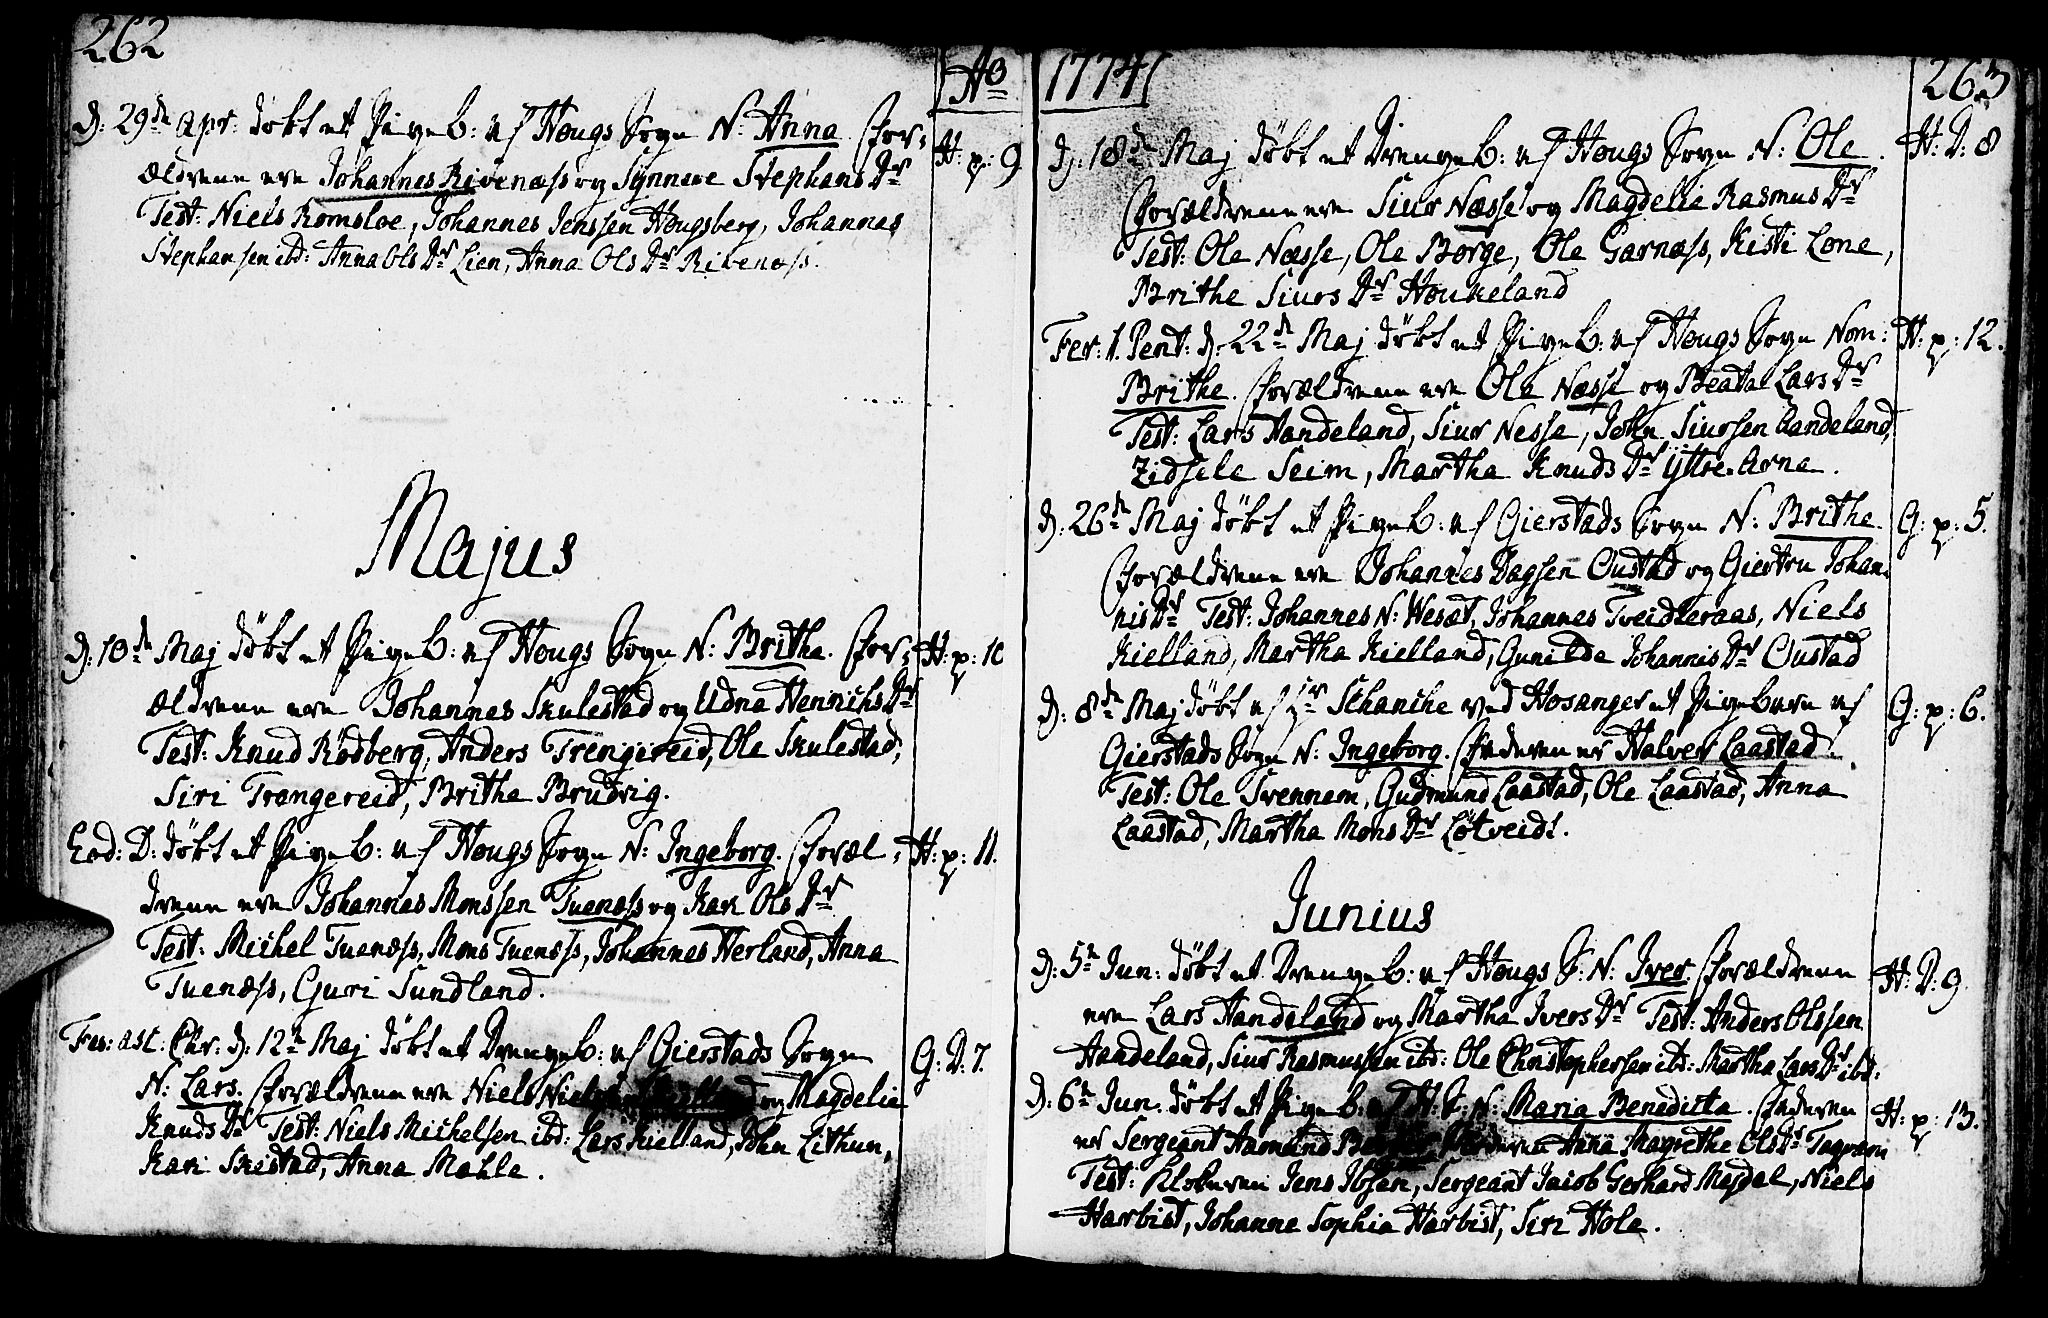 262
Ao
D: 29de Apr: döbt et Pigeb: af Hougs Sogn N: Anna. For=
H: p: 9
ældrene ere Johannes Rivenæss og Synneve Stephans Dr
Test: Niels Romsloe, Johannes Jenssen Hougsberg, Johannes
Stephansen ibd: Anna Ols Dr Lien, Anna Ols Dr Rivenæss.
Majus
D: 10de Maj döbt et Pigeb: af Hougs Sogn N: Brithe. For=
H: p: 10
ældrene ere Johannes Skulestad og Udna Henrichs Dr
Test: Knud Rödberg, Anders Trengereid, Ole Skulestad,
Siri Trengereid, Brithe Brudvig.
Eod: D: döbt et Pigeb: af Hougs Sogn N: Ingeborg. Foræl=
H: p: 11.
drene ere Johannes Monssen Tuenæss og Kari Ols Dr
Test: Michel Tuenæss, Mons Tuenæss, Johannes Herland, Anna
Tuenæss, Guri Sundland.
Fer: ast: Chr: D: 12te Maj döbt et Drengeb: af Gierstads Sogn
G: D: 7.
N: Lars. Forældrene ere Niels og Magdelie
Knuds Dr Test: Niels Michelsen ibd: Lars Kielland, John Lithun,
Kari Skistad, Anna Mahle.
1774
263
D: 18de Maj döbt et Drengeb: af Hougs Sogn N: Ole.
H: D: 8
Forældrene ere Siur Næsse og Magdelie Rasmus Dr
Test: Ole Næsse, Ole Borge, Ole Garnæss, Kisti Lone,
Brithe Siurs Dr Houkeland
Fer: 1. Pent: D: 22de Maj döbt et Pigeb: af Hougs Sogn Nom:
H: p: 12.
Brithe. Forældrene ere Ole Næsse og Beata Lars Dr
Test: Lars Handeland, Siur Nesse, John Siursen Handeland,
Zidsele Seim, Martha Knuds Dr Yttre-Arne.
D: 26de Maj döbt et Pigeb: af Gierstads Sogn N: Brithe.
G: p: 5.
Forældrene ere Johannes Dagsen Oustad og Giertru Johan=
nis Dr Test: Johannes N: Wesæt, Johannes Tveidteraas, Niels
Kielland, Martha Kielland, Gunilde Johannis Dr Oustad
D: 8de Maj döbt af Hr Schanche ved Hosanger et Pigebarn af
G: p: 6.
Gierstads Sogn N: Ingeborg. Faderen er Halver Laastad.
Test: Ole Svennem, Gudmund Laastad, Ole Laastad, Anna
Laastad, Martha Mons Dr Lötveidt.
Junius
D: 5te Jun: döbt et Drengeb: af Hougs S: N: Iver. Forældrene
H: D: 9.
ere Lars Handeland og Martha Ivers Dr Test: Anders Olssen
Handeland, Siur Rasmussen ibd: Ole Christophersen ibd: Martha Lars Dr ibd:
D: 6te Jun: döbt et Pigeb: af H: S: N: Maria Benedicta. Faderen
H: p: 13.
er Sergeant Aamund Anna Magrethe Ols Dr
Test: Klokeren Jens Ibsen, Sergeant Jacob Gerhard Mejdal, Niels
Harbist, Johanne Sophia Harbist, Siri Hole.